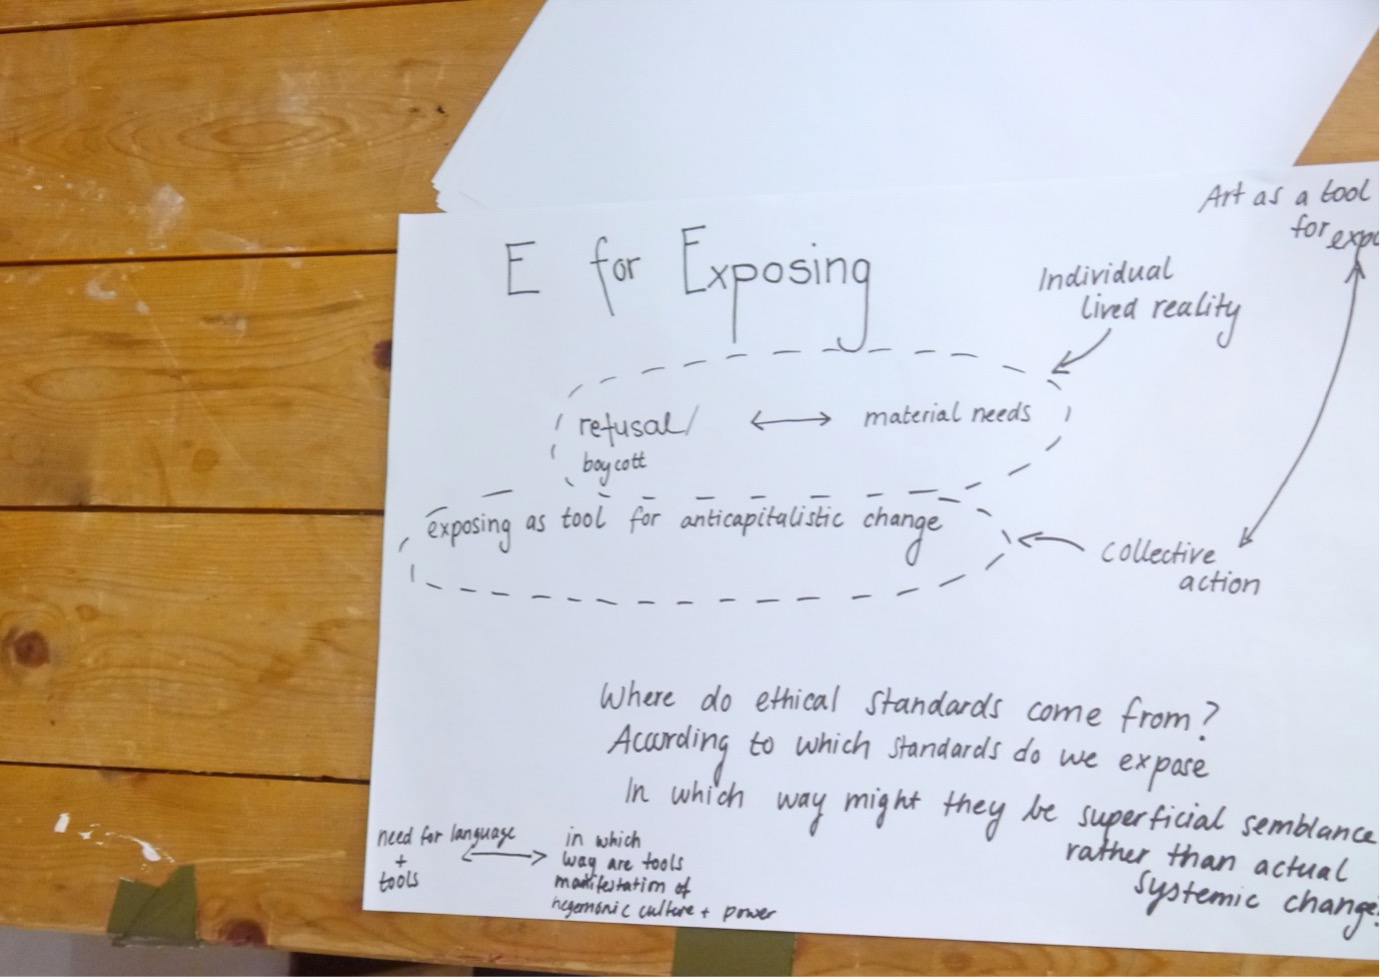 E for Exposing
Art as a tool
for expo
Individual
lived reality
refusal/ ⟷ material needs
boycott
exposing as tool for anticapitalistic change
collective
action
Where do ethical standards come from?
According to which standards do we expose
In which way might they be superficial semblance
rather than actual
systemic change?
need for language
+
tools
in which
way are tools
manifestation of
hegemonic culture + power